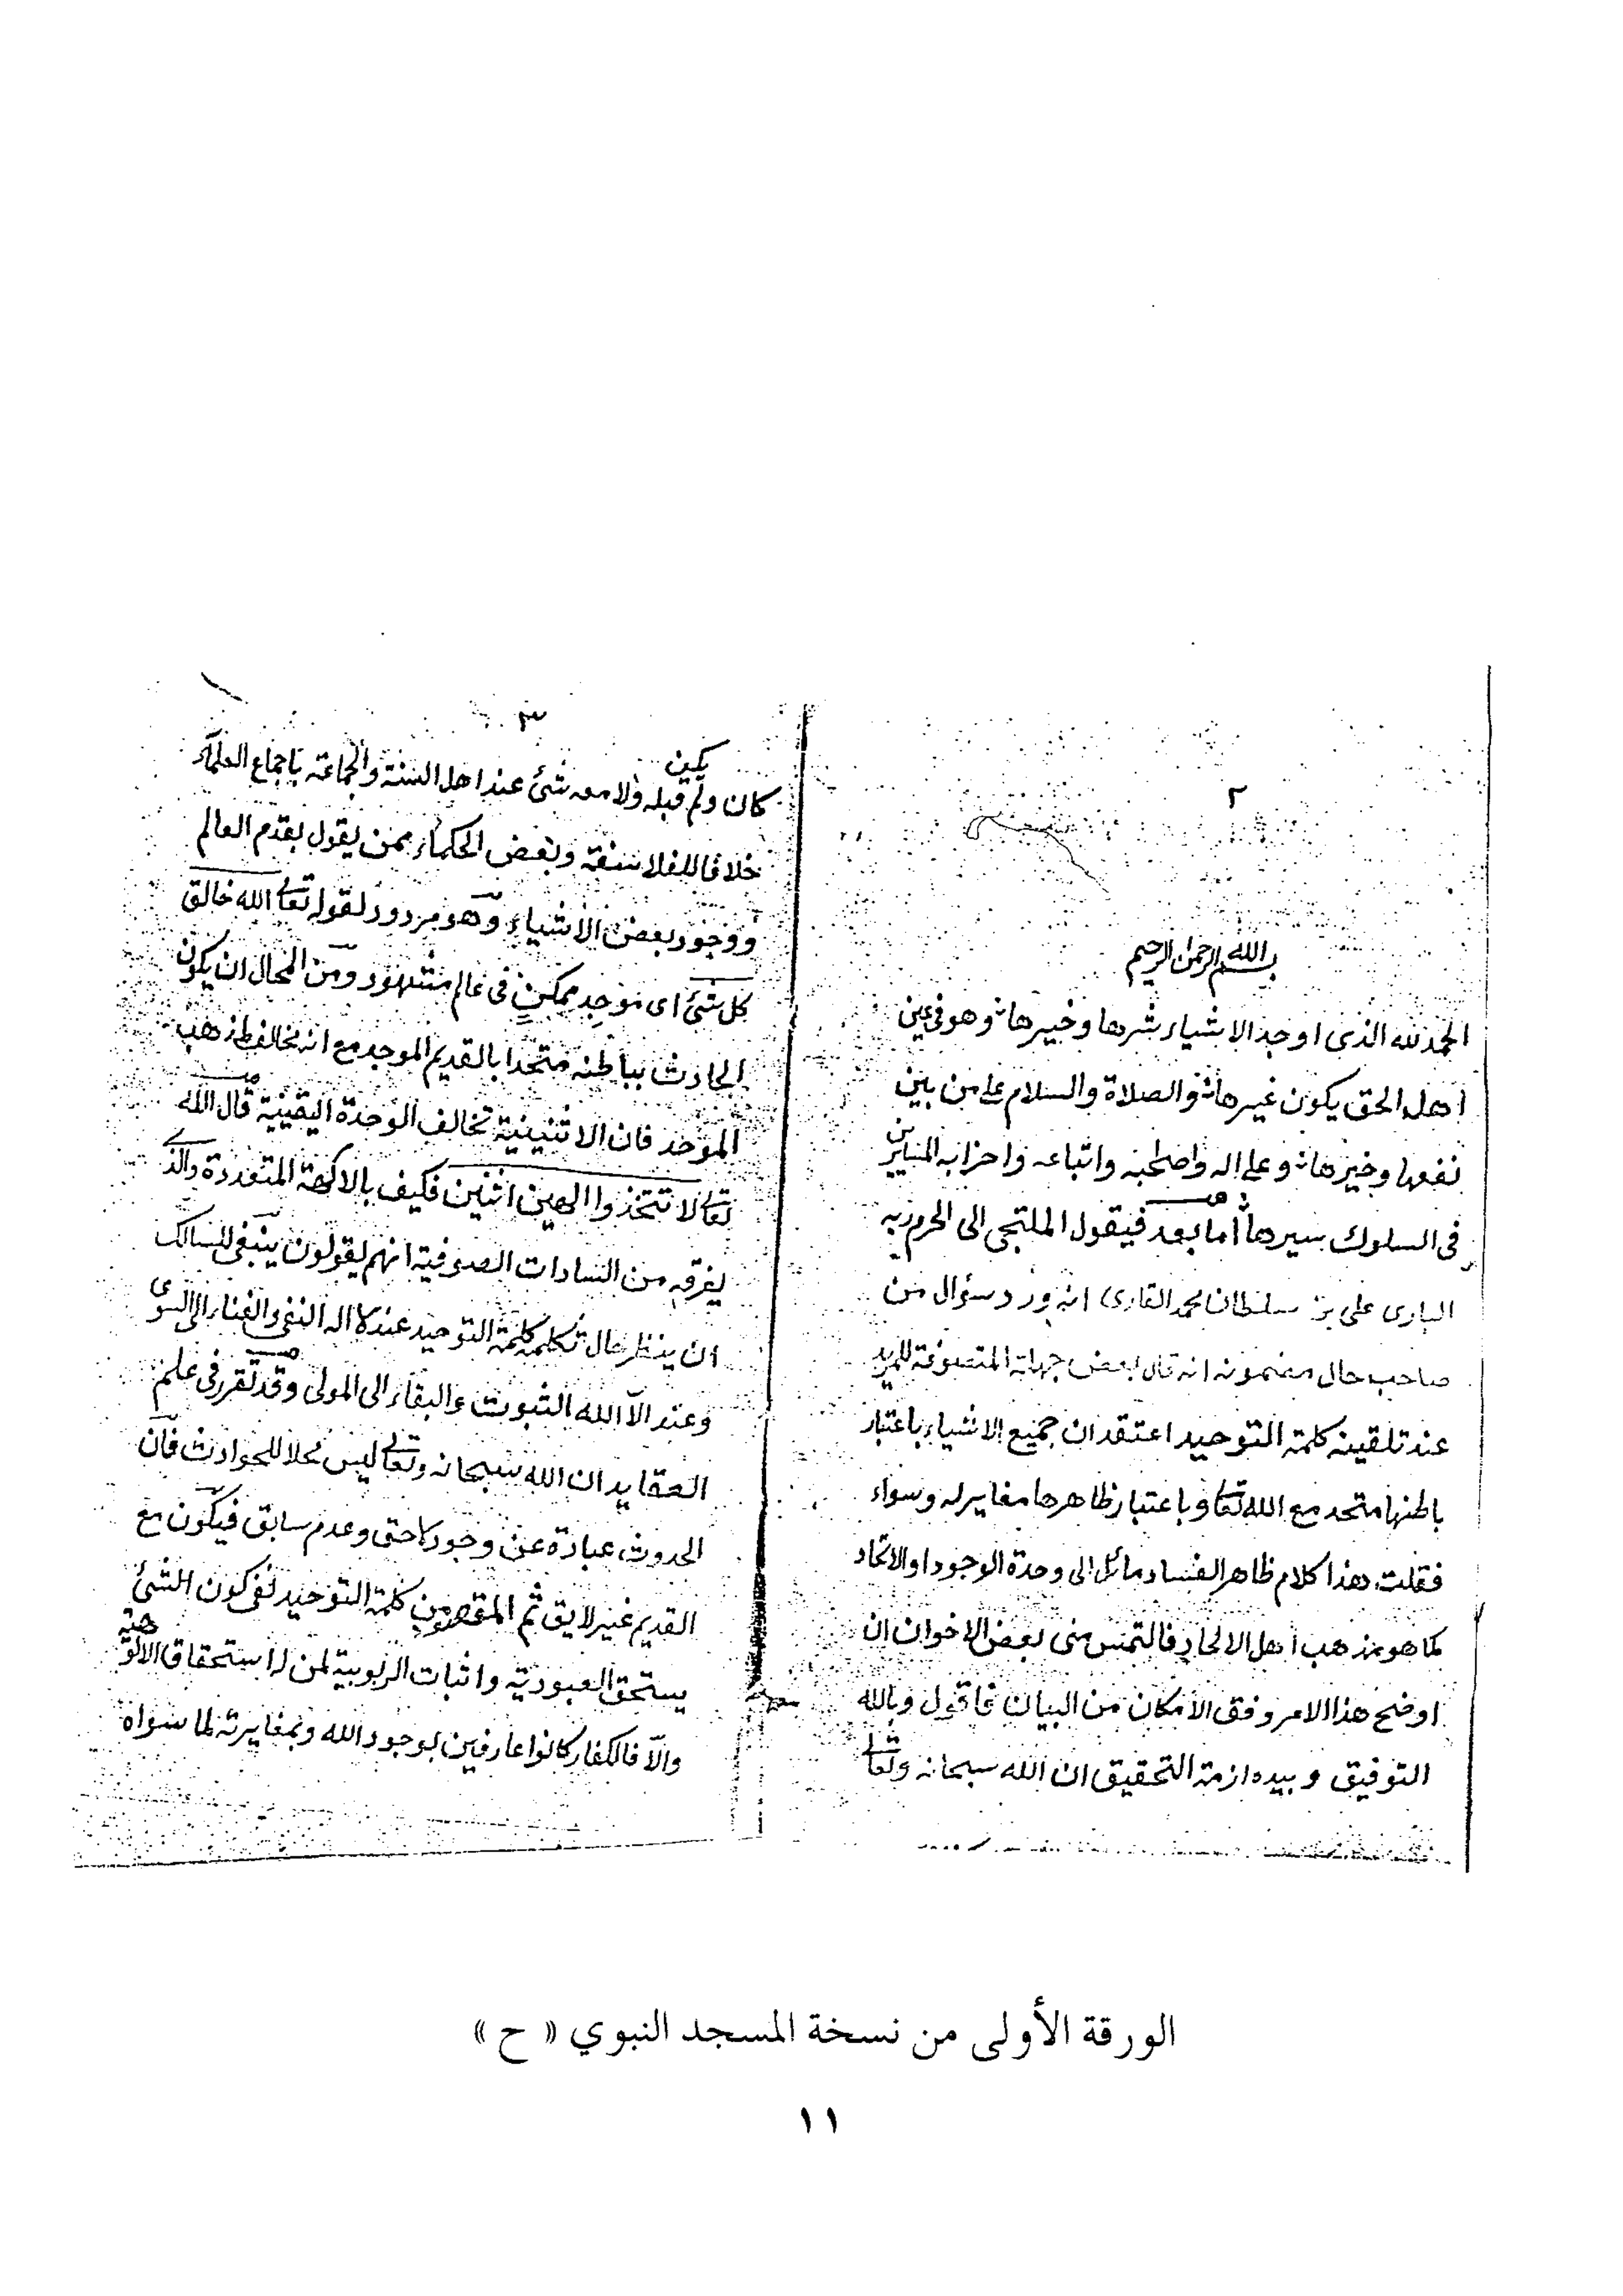 ٢
بسم الله الرحمن الرحيم
الحمد لله الذى اوجد الاشياء شرها وخيرها وهو فى عين
اهل الحق يكون غيرها والصلاة والسلام على من بين
نفعها وخيرها وعلى اله واصحبه واتباعه واحزابه السايرين
فى السلوك سيرها اما بعد فيقول الملتجى الى الحرم ربه
البارى على بن سلطان محمد القارى انه ورد سؤال من
صاحب حال مضمونه انه قال بعض جهلة المتصوفة للمريد
عند تلقينه كلمة التوحيد اعتقد ان جميع الاشياء باعتبار
باطنها متحد مع الله تعالى وباعتبار ظاهرها مغاير له وسواء
فقلت هذا كلام ظاهر الفساد مائل الى وحدة الوجود او الاتحاد
كما هو مذهب اهل الالحاد فالتمس منى بعض الاخوان ان
اوضح هذا الامر وفق الامكان من البيان فاقول وبالله
التوفيق وبيده ازمة التحقيق ان الله سبحانه وتعالى
٣
كان ولم يكن قبله ولا معه شئ عند اهل السنة والجماعة باجماع العلماء
خلافا للفلاسفة وبعض الحكماء ممن يقول بقدم العالم
ووجود بعض الاشياء وهو مردود لقوله تعالى الله خالق
كل شئ اى موجد ممكن فى عالم مشهود ومن المحال ان يكون
الحادث بباطنه متحدا بالقديم الموجد مع انه مخالف لمذهب
الموحد فان الاثنينية تخالف الوحدة اليقينية قال الله
تعالى لا تتخذوا الهين اثنين فكيف بالالهة المتعددة والذى
يعرفه من السادات الصوفية انهم يقولون ينبغى للسالك
ان ينظر حال تكلمه كلمة التوحيد عند لا اله النفى والفناء الى السوى
وعند الا الله الثبوت والبقاء الى المولى وقد تقرر فى علم
العقايد ان الله سبحانه وتعالى ليس محلا للحوادث فان
الحدوث عبارة عن وجود لاحق وعدم سابق فيكون مع
القديم غير لايق ثم المقصود من كلمة التوحيد نفى كون الشئ
يستحق العبودية واثبات الربوبية لمن له استحقاق الالوهية
والا فالكفار كانوا عارفين بوجود الله وبمغايرته لما سواه
الورقة الأولى من نسخة المسجد النبوي « ح »
١١